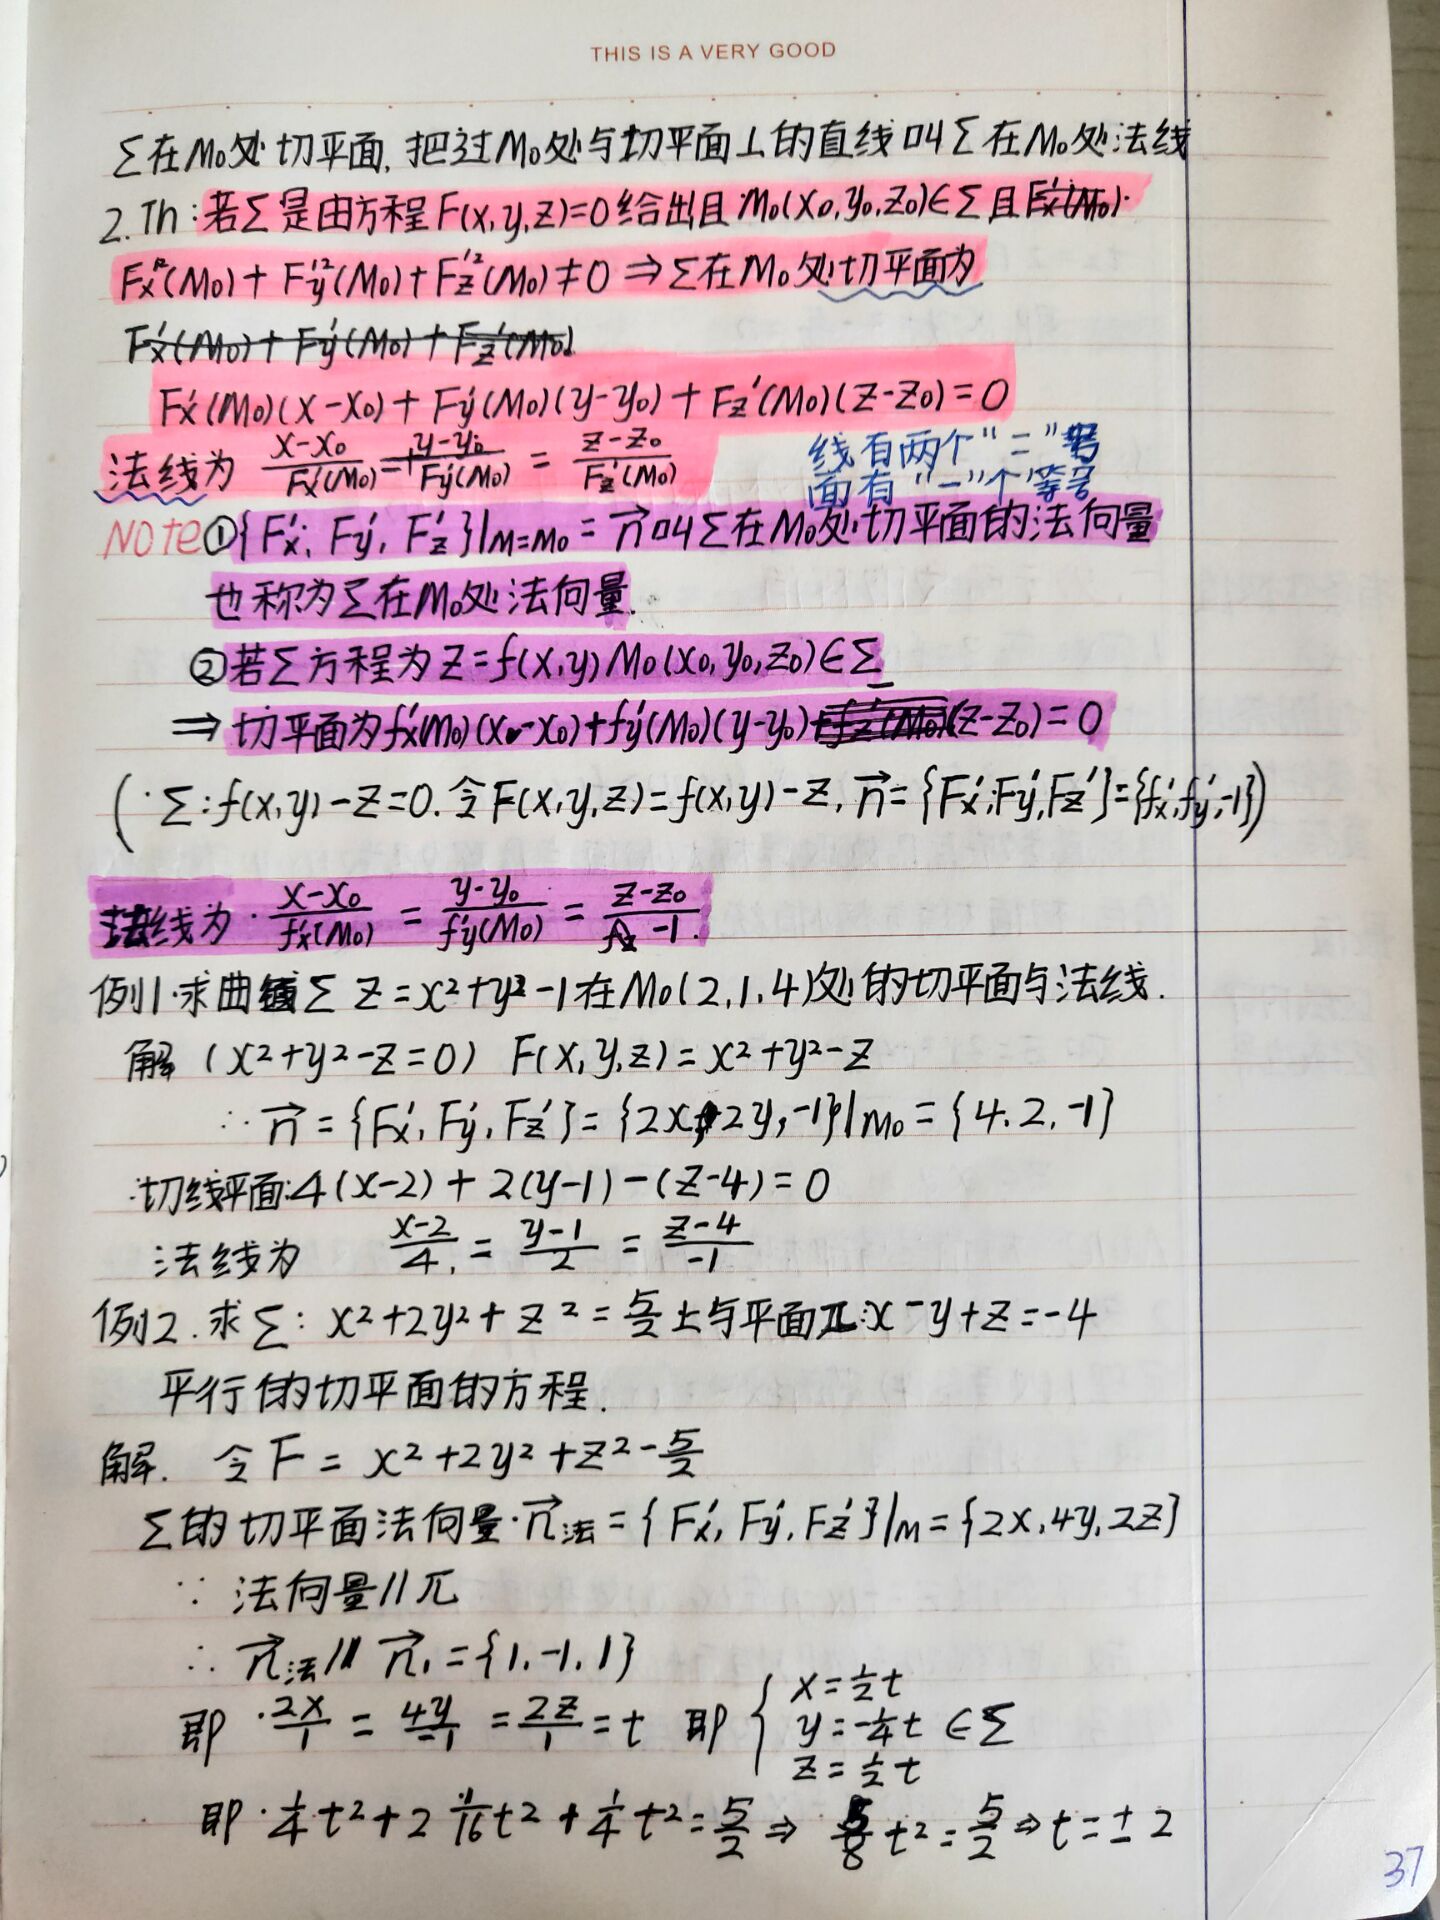 THIS IS A VERY GOOD
Σ在M₀处切平面,把过M₀处与切平面⊥的直线叫Σ在M₀处法线
2.Th:若Σ是由方程F(x,y,z)=0给出且M₀(x₀,y₀,z₀)∈Σ且
Fx'²(M₀)+Fy'²(M₀)+Fz'²(M₀)≠0⇒Σ在M₀处切平面为
Fx'(M₀)+Fy'(M₀)+Fz'(M₀)
Fx'(M₀)(x-x₀)+Fy'(M₀)(y-y₀)+Fz'(M₀)(z-z₀)=0
法线为 (x-x₀)/Fx'(M₀) = (y-y₀)/Fy'(M₀) = (z-z₀)/Fz'(M₀)
线有两个"="号
面有"一"个等号
NOTe①{Fx',Fy',Fz'}|M=M₀=n⃗叫Σ在M₀处切平面的法向量
也称为Σ在M₀处法向量.
②若Σ方程为z=f(x,y)M₀(x₀,y₀,z₀)∈Σ
⇒切平面为fx'(M₀)(x-x₀)+fy'(M₀)(y-y₀)-(z-z₀)=0
(∵Σ:f(x,y)-z=0.令F(x,y,z)=f(x,y)-z,n⃗={Fx',Fy',Fz'}={fx',fy',-1})
法线为 (x-x₀)/fx'(M₀) = (y-y₀)/fy'(M₀) = (z-z₀)/-1.
例1.求曲面Σ z=x²+y²-1在M₀(2,1,4)处的切平面与法线.
解 (x²+y²-z=0) F(x,y,z)=x²+y²-z
∴n⃗={Fx',Fy',Fz'}={2x,2y,-1}|M₀={4,2,-1}
∴切线平面:4(x-2)+2(y-1)-(z-4)=0
法线为 (x-2)/4 = (y-1)/2 = (z-4)/-1
例2.求Σ:x²+2y²+z²=5/2上与平面π:x-y+z=-4
平行的切平面的方程.
解. 令F=x²+2y²+z²-5/2
Σ的切平面法向量n⃗法={Fx',Fy',Fz'}|M={2x,4y,2z}
∵法向量//π
∴n⃗法//n⃗₁={1,-1,1}
即 2x/1 = 4y/-1 = 2z/1 = t 即{x=1/2t y=-1/4t z=1/2t ∈Σ
即1/4t²+2 1/16t²+1/4t²=5/2⇒5/8t²=5/2⇒t=±2
37